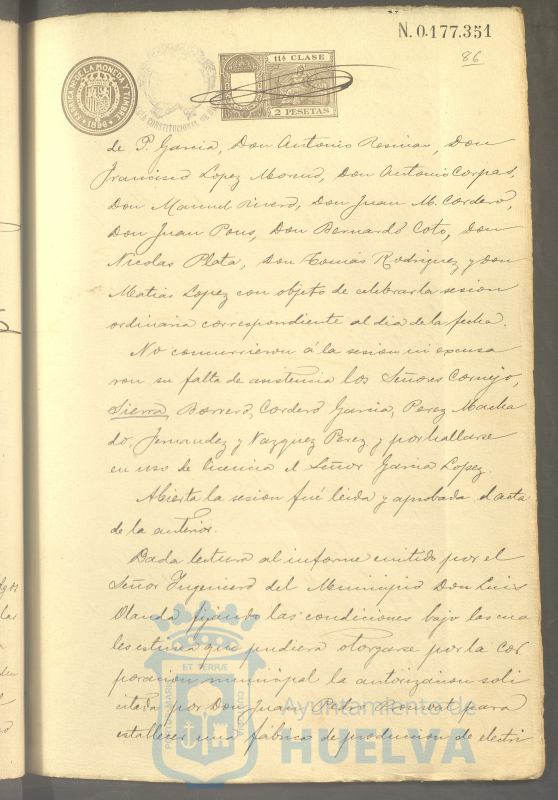 N. 0.177.351
86
11ª CLASE
2 PESETAS
FABRICA DE LA MONEDA Y TIMBRE
1896
CONSTITUCIONAL
de P. Garcia, Don Antonio Resinas, Don
Francisco Lopez Moreno, Don Antonio Corpas,
Don Manuel Rivero, Don Juan M. Cordero,
Don Juan Pons, Don Bernardo Coto, Don
Nicolas Plata, Don Tomás Rodriguez y Don
Matias Lopez con objeto de celebrar la sesion
ordinaria correspondiente al dia de la fecha.
No concurrieron á la sesion ni excusa
ron su falta de asistencia los Señores Cornejo,
Sierra, Borrero, Cordero Garcia, Perez Macha
do, Fernandez y Vazquez Perez y por hallarse
en uso de licencia el Señor Garcia Lopez.
Abierta la sesion fué leida y aprobada el acta
de la anterior.
Dada lectura al informe emitido por el
Señor Ingeniero del Municipio Don Luis
Olanda fijando las condiciones bajo las cua
les estima que pudiera otorgarse por la Cor
poracion municipal la autorizacion soli
citada por Don Juan Pedro para
establecer una fábrica de produccion de electri
PORTUS MARIS ET TERRÆ CUSTODIA
Ayuntamiento de
HUELVA